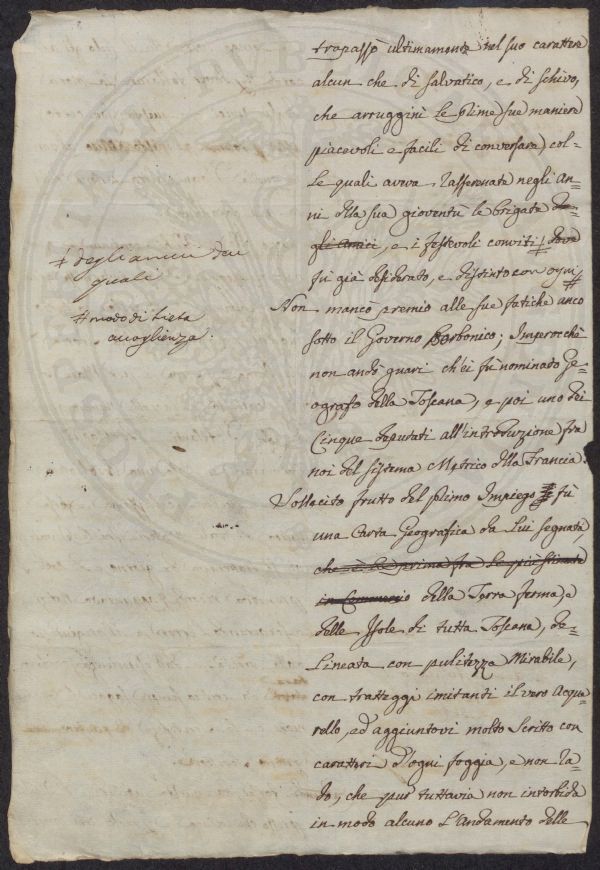 trapassò ultimamente nel suo carattere
alcun che di salvatico, e di schivo,
che arrugginì le prime sue maniere
piacevoli e facili di conversare) col-
le quali aveva rasserenate negli an-
ni della sua gioventù le brigate de-
gli amici, e i festevoli conviti dove
fù già desiderato, e distinto con ogni
# degli amici dai
quali
# modo di lieta
accoglienza.
Non mancò premio alle sue fatiche anco
sotto il Governo Borbonico; Imperocchè
non andò guari ch'ei fù nominato Ge-
ografo della Toscana, e poi uno dei
Cinque deputati all'introduzione fra
noi del sistema Metrico della Francia.
Sollecito frutto del primo Impiego fù
una Carta Geografica da lui segnata,
che è la prima fra le più stimate
in Commercio della Terra ferma, e
delle Isole di tutta Toscana, de-
lineata con pulitezza Mirabile,
con tratteggi imitanti il vero Acque-
rello, ed aggiuntovi molto Scritto con
caratteri d'ogni foggia, e non ra-
do, che pur tuttavia non intorbida
in modo alcuno l'Andamento delle